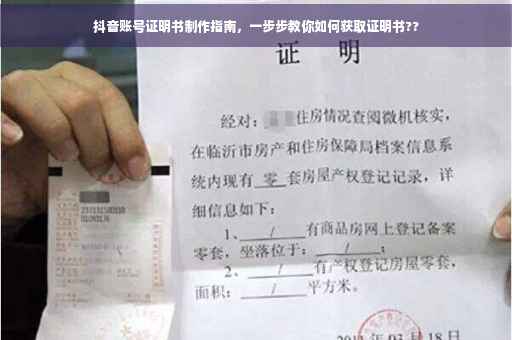 抖音账号证明书制作指南，一步步教你如何获取证明书??
证 明
经对：住房情况查阅微机核实，
在临沂市房产和住房保障局档案信息系
统内现有 零 套房屋产权登记记录，详
细信息如下：
1、 / 有商品房网上登记备案
零套，坐落位于： / ；
2、 / 有产权登记房屋零套，
面积： / 平方米。
03月18日